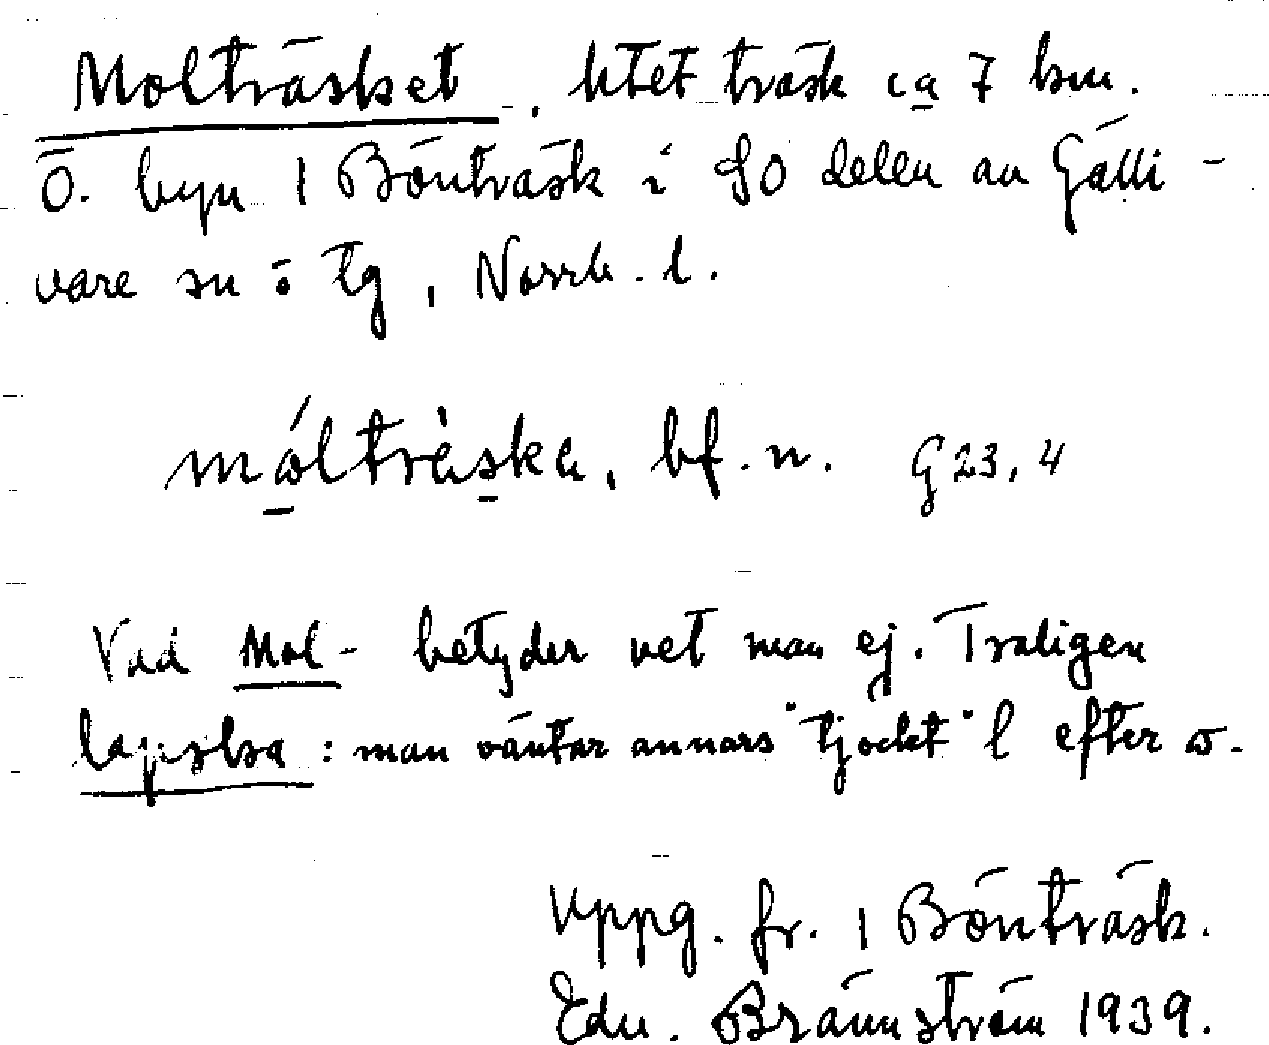 Molträsket, litet träsk ca 7 km.
Ö. byn 1 Bönträsk i SO delen av Gälli-
vare sn o tg, Norrb. l.
mόlträ̀ske, bf. n. G 23, 4
Vad Mol- betyder vet man ej. Troligen
lapska: man väntar annars "tjockt" l efter ω.
Uppg. fr. 1 Bönträsk.
Edv. Brännström 1939.